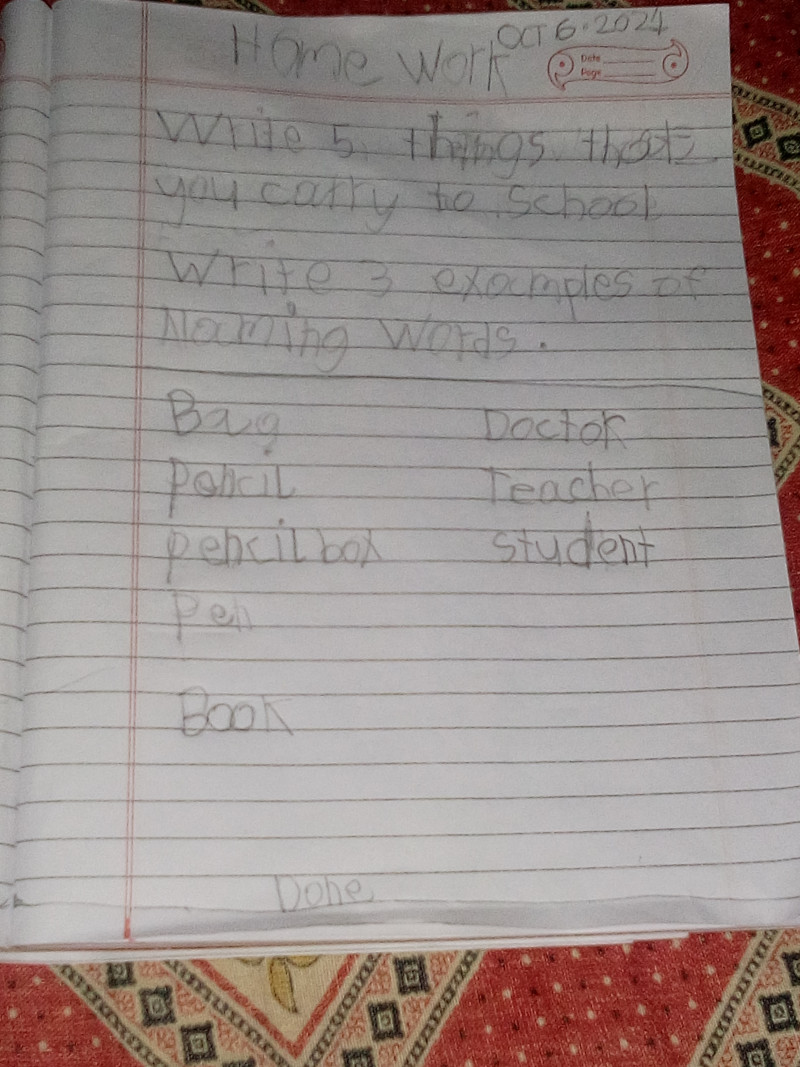 Home Work OCT 6.2024
Date
Page
Write 5 things that
you carry to school
Write 3 examples of
Naming words.
Bag Doctor
pencil Teacher
pencil box student
Pen
Book
Done